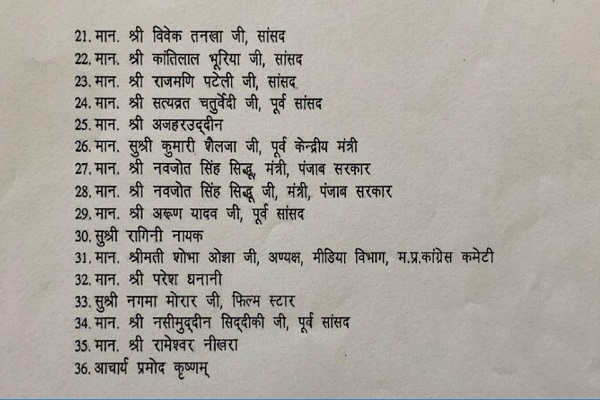 21. मान. श्री विवेक तनखा जी, सांसद
22. मान. श्री कांतिलाल भूरिया जी, सांसद
23. मान. श्री राजमणि पटेली जी, सांसद
24. मान. श्री सत्यव्रत चतुर्वेदी जी, पूर्व सांसद
25. मान. श्री अजहरउद्दीन
26. मान. सुश्री कुमारी शैलजा जी, पूर्व केन्द्रीय मंत्री
27. मान. श्री नवजोत सिंह सिद्धू, मंत्री, पंजाब सरकार
28. मान. श्री नवजोत सिंह सिद्धू जी, मंत्री, पंजाब सरकार
29. मान. श्री अरूण यादव जी, पूर्व सांसद
30. सुश्री रागिनी नायक
31. मान. श्रीमती शोभा ओझा जी, अण्यक्ष, मीडिया विभाग, म.प्र.कांग्रेस कमेटी
32. मान. श्री परेश धनानी
33. सुश्री नगमा मोरार जी, फिल्म स्टार
34. मान. श्री नसीमुद्दीन सिद्दीकी जी, पूर्व सांसद
35. मान. श्री रामेश्वर नीखरा
36. आचार्य प्रमोद कृष्णम्